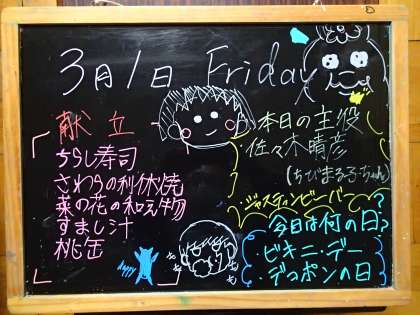 3月1日 Friday
献立
ちらし寿司
さわらの利休焼
菜の花の和え物
すまし汁
桃缶
happy
本日の主役
佐々木晴彦
(ちびまる子ちゃん)
ジャスティンビーバー?
今日は何の日?
ビキニ・デー
デコポンの日